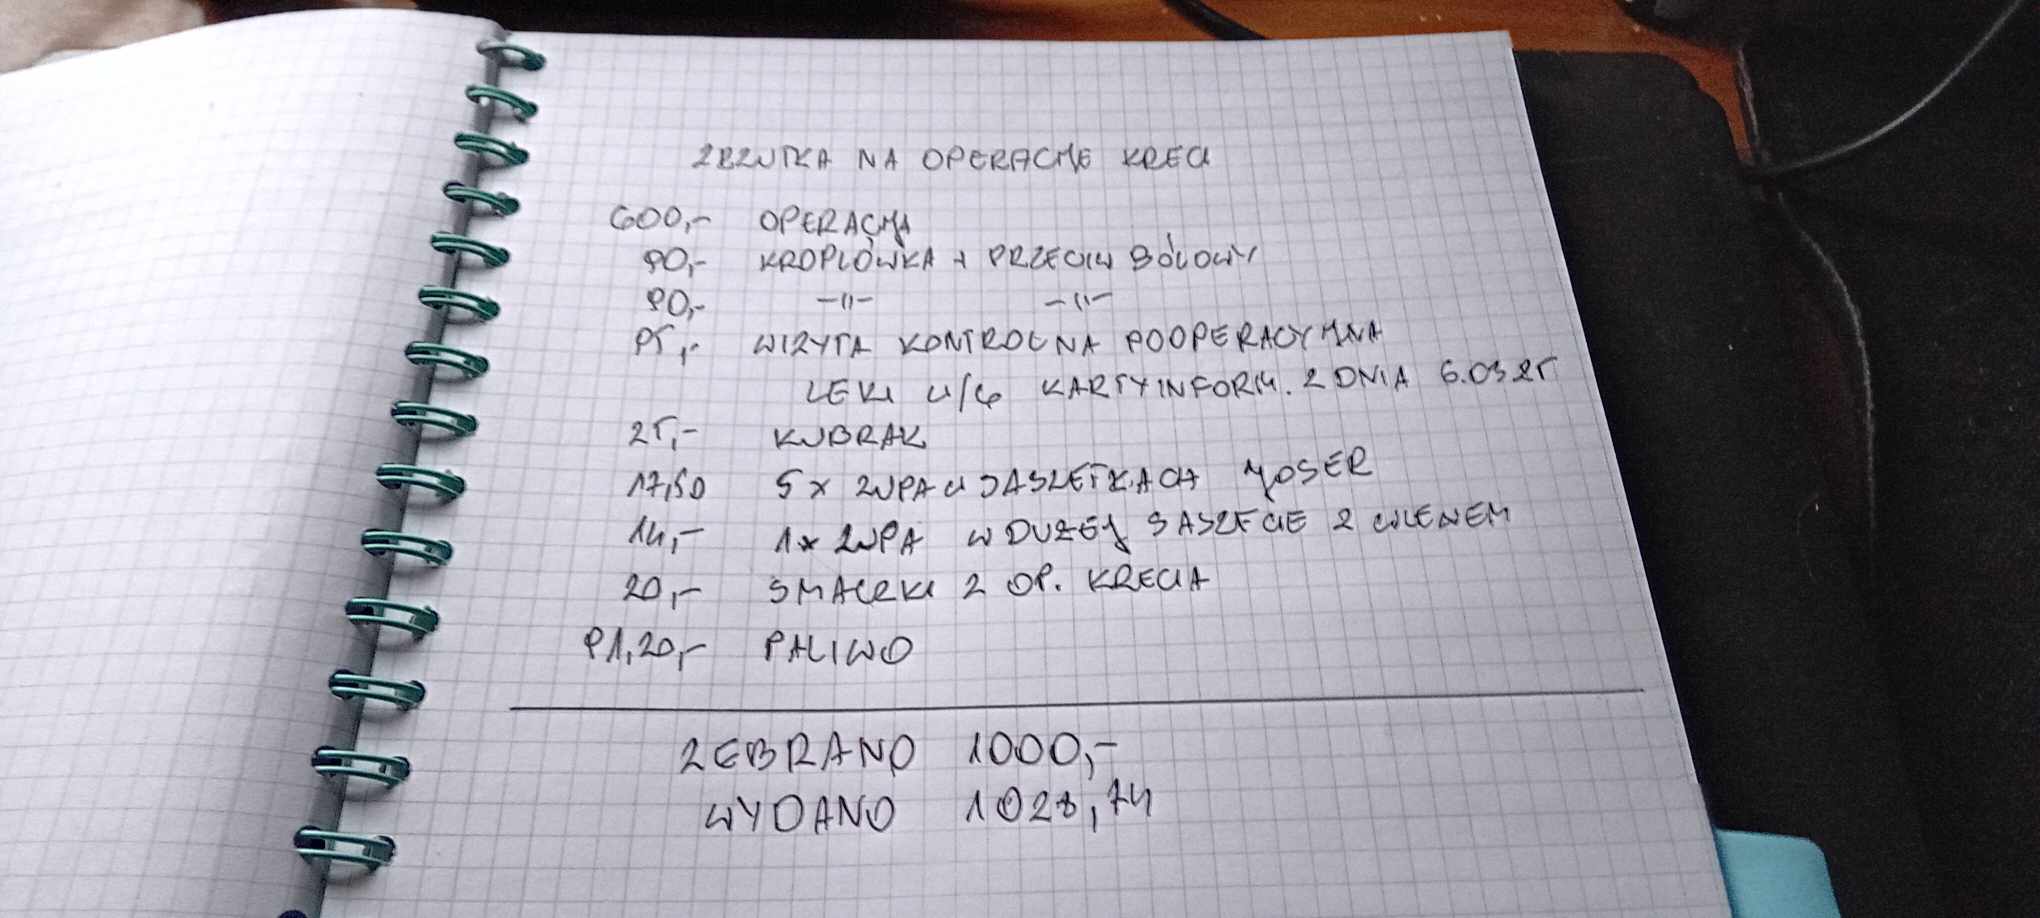 ZRZUTKA NA OPERACJĘ KRECI
600,- OPERACJA
90,- KROPLÓWKA + PRZECIW BÓLOWY
90,- -//- -//-
95,- WIZYTA KONTROLNA POOPERACYJNA
LEKI W/G KARTY INFORM. Z DNIA 6.03.25
25,- KUBRAK
17,50 5x ZUPA W SASZETKACH JOSER
14,- 1x ZUPA W DUŻEJ SASZECIE Z
20,- SMACZKI Z OP. KRECIA
91,20,- PALIWO
ZEBRANO 1000,-
WYDANO 1028,74